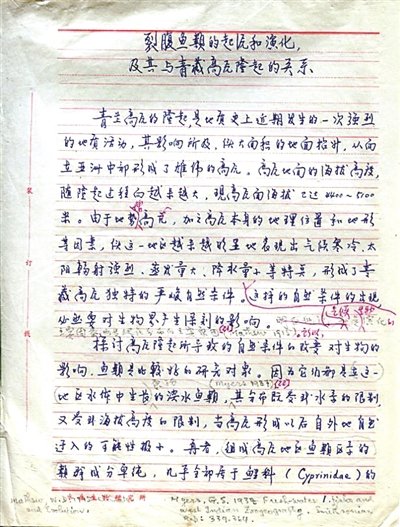 裂腹鱼类的起沅和演化,
及其与青藏高沅隆起的关系
青芷高沅的隆起,是地质史上近期发生的一次强烈
的地质活动,其影响所及,使大面积的地面抬升,从而
在亚洲中部形成了雄伟的高沅。高沅地面的海拔高度,
随隆起过程而越来越大,现高沅面海拔已达4400—5100
米。由于地势高亢,加之高沅本身的地理位置和地形
等因素,使这一地区越来越明显地表现出气候寒冷,太
阳辐射强烈,蒸发量大、降水量少等特点,形成了青
藏高沅独特的严峻自然条件。这样的自然条件的出现
必然要对生物界产生深刻的影响。
探讨高沅隆起所导致的自然条件的改变对生物的
影响,鱼类是比较好的研究对象。因为它们都是在这一
地区水体中生长的淡水鱼类,其分布既受到水系的限制,
又受到海拔高度的限制,当高沅形成以后自外地自然
迁入的可能性极小。再者,组成高沅地区鱼类区系的
类群成分单纯,几乎全部属于鲤科(Cyprinidae)的
(Myers 1938)
装
订
线
Myers, G.S. 1938 Freshwater fishes and
West Indian Zoogeography. Smithsonian
Rep: 339-364.
and Evolution.